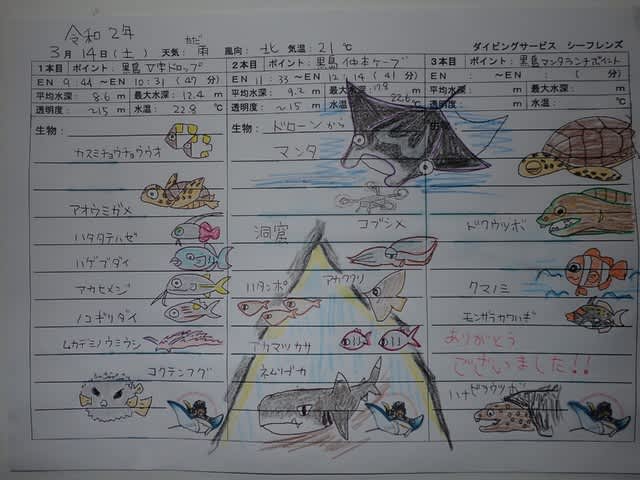 令和2年
3月14日(土) 天気:雨 風向:北 気温:21℃ ダイビングサービス シーフレンズ
1本目 ポイント:黒島V字ドロップ
EN 9:44 ~EN 10:31 (47 分)
平均水深: 8.6 m 最大水深: 12.4 m
透明度: ~15 m 水温: 22.8 ℃
生物:
カスミチョウチョウウオ
アオウミガメ
ハタタテハゼ
ハゲブダイ
アカヒメジ
ノコギリダイ
ムカデミノウミウシ
コクテンフグ
2本目 ポイント:黒島仲本ケーブ
EN 11:33 ~EN 12:14 (41 分)
平均水深: 9.2 m 最大水深: 17.8
透明度: ~15 m 水温: 22.8 ℃
生物: ドローンから
マンタ
コブシメ
洞窟
ハタンポ アカククリ
アカマツカサ
ネムリブカ
3本目 ポイント:黒島マンタランチポイント
EN : ~EN : ( 分)
平均水深: m 最大水深: m
透明度: m 水温: ℃
ドクウツボ
クマノミ
モンガラカワハギ
ありがとう
ございました!!
ハナビラウツボ